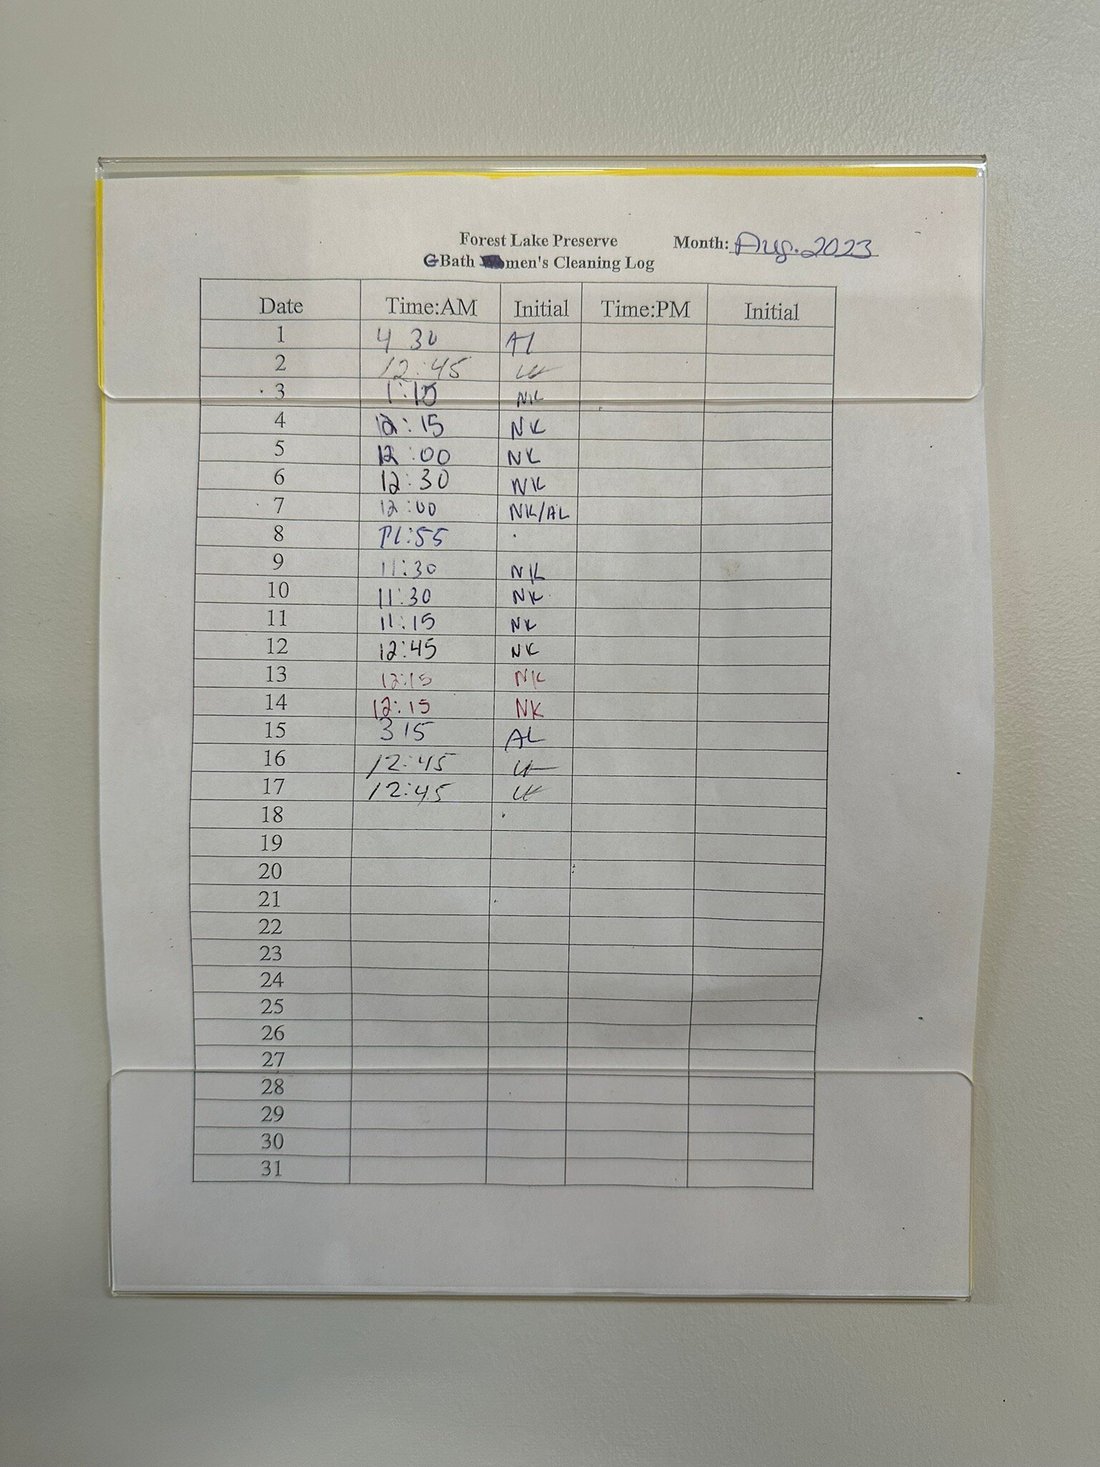 Forest Lake Preserve
Month: Aug. 2023
GBath men's Cleaning Log
Date Time:AM Initial Time:PM Initial
1 4 30 AL
2 12:45
3 1:10 NK
4 12:15 NK
5 12:00 NK
6 12:30 NK
7 12:00 NK/AL
8 :55
9 11:30 NK
10 11:30 NK
11 11:15 NK
12 12:45 NK
13 12:15 NK
14 12:15 NK
15 3 15 AL
16 12:45
17 12:45
18
19
20
21
22
23
24
25
26
27
28
29
30
31